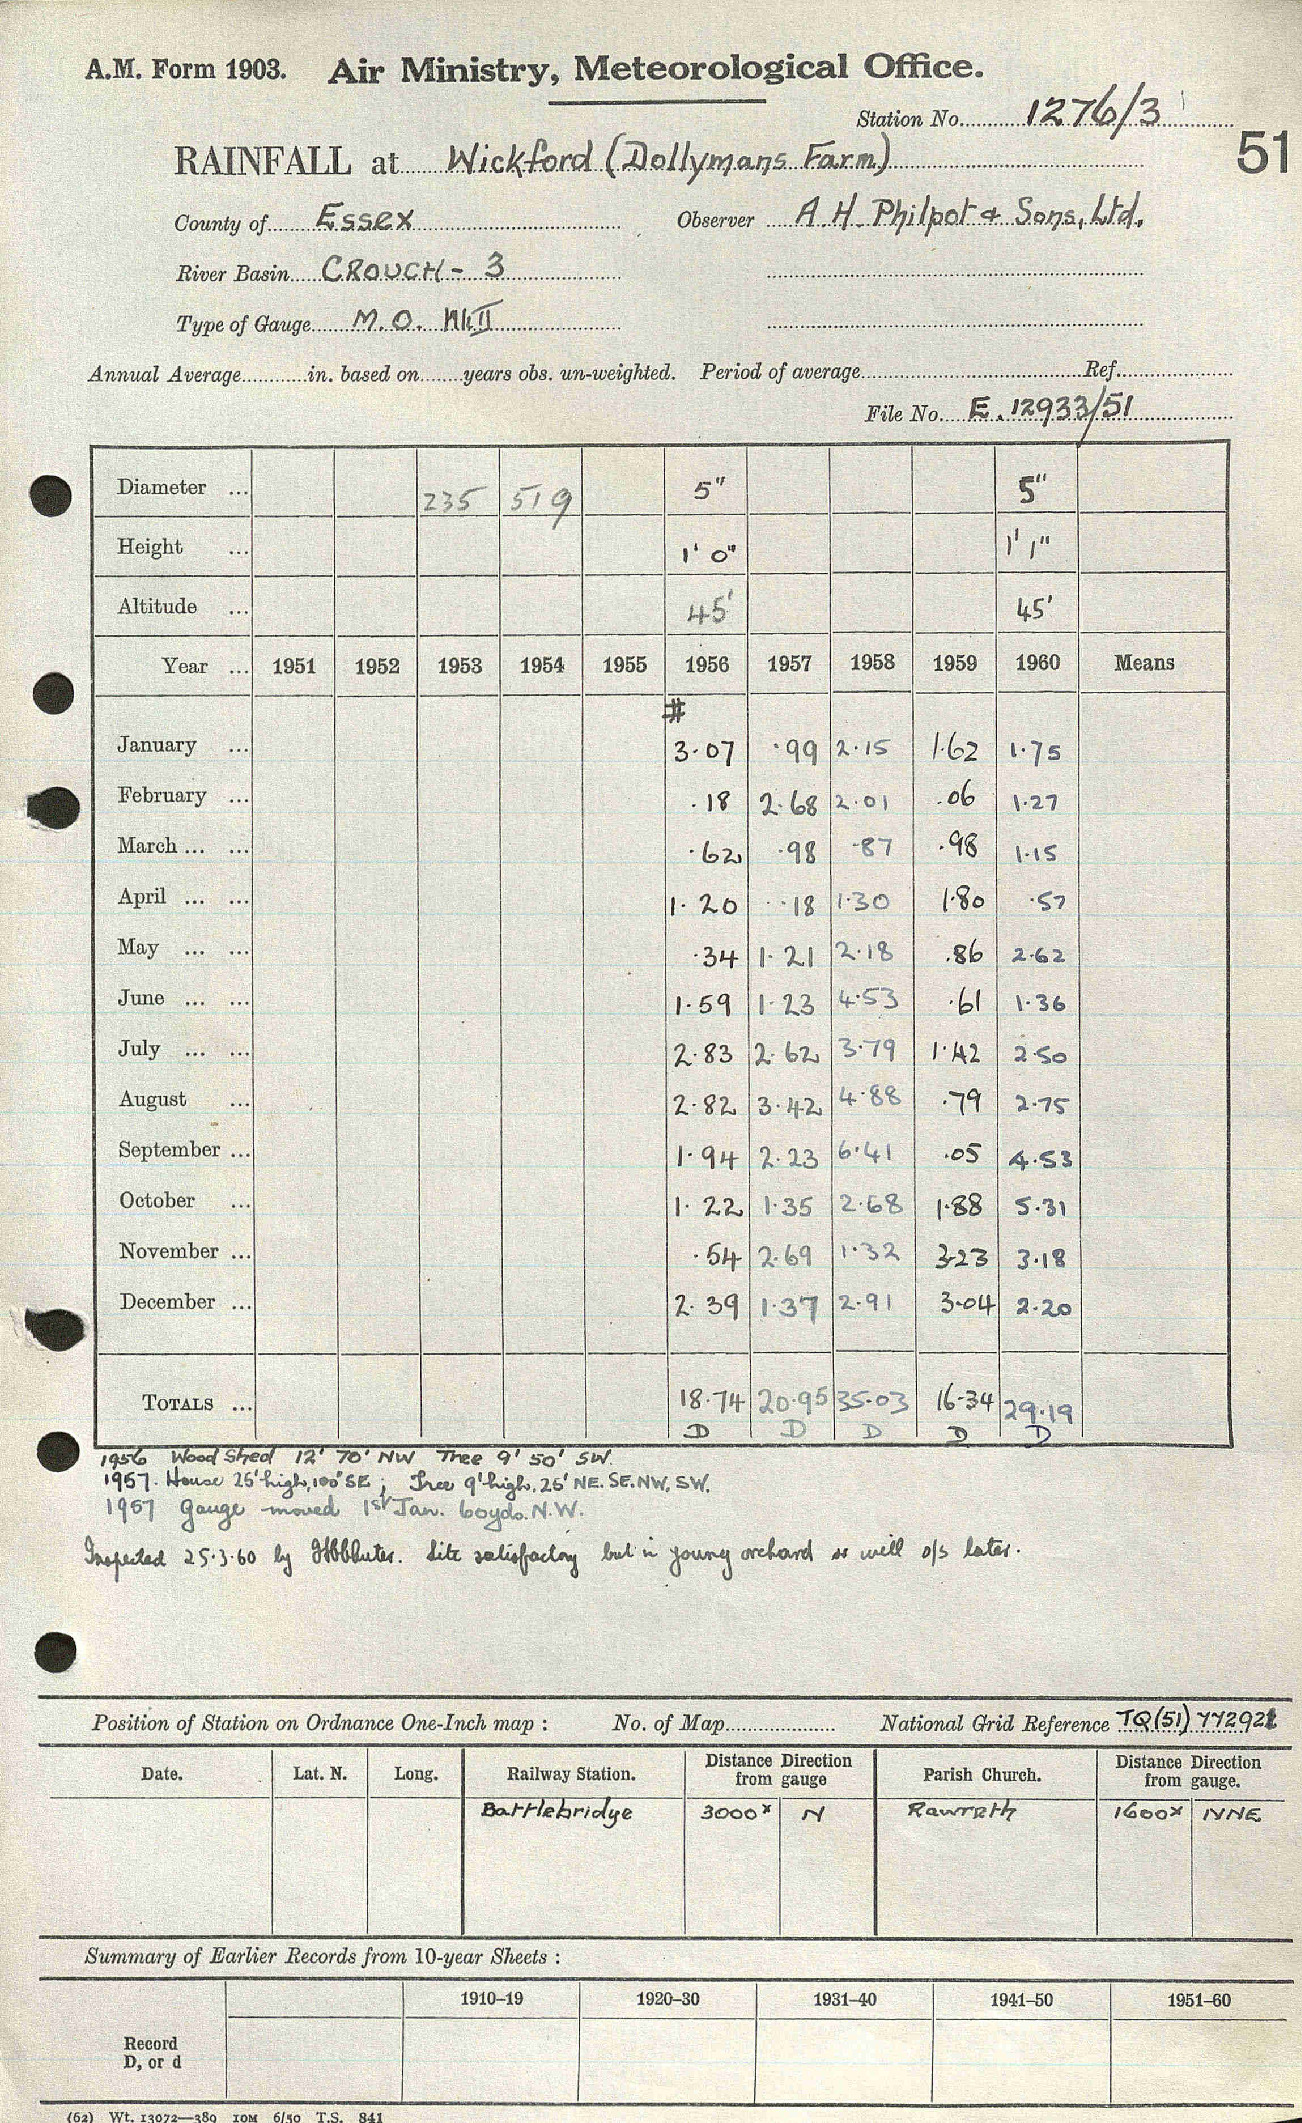 A.M. Form 1903. Air Ministry, Meteorological Office.
Station No. 1276/3
51
RAINFALL at Wickford (Dollymans Farm)
County of Essex Observer A.H. Philpot & Sons, Ltd.
River Basin CROUCH - 3
Type of Gauge M.O. Mk II
Annual Average in. based on years obs. un-weighted. Period of average Ref.
File No. E. 12933/51
Diameter ... 235 519 5" 5"
Height ... 1' 0" 1' 1"
Altitude ... 45' 45'
Year ... 1951 1952 1953 1954 1955 1956 1957 1958 1959 1960 Means
#
January ... 3.07 .99 2.15 1.62 1.75
February ... .18 2.68 2.01 .06 1.27
March ... ... .62 .98 .87 .98 1.15
April ... ... 1.20 .18 1.30 1.80 .57
May ... ... .34 1.21 2.18 .86 2.62
June ... ... 1.59 1.23 4.53 .61 1.36
July ... ... 2.83 2.62 3.79 1.42 2.50
August ... 2.82 3.42 4.88 .79 2.75
September ... 1.94 2.23 6.41 .05 4.53
October ... 1.22 1.35 2.68 1.88 5.31
November ... .54 2.69 1.32 3.23 3.18
December ... 2.39 1.37 2.91 3.04 2.20
TOTALS ... 18.74 20.95 35.03 16.34 29.19
D D D D D
1956 Wood Shed 12' 70' NW Tree 9' 50' SW.
1957. House 25' high, 100' SE; Tree 9' high, 25' NE. SE. NW, SW.
1957 Gauge moved 1st Jan. 60yds. N.W.
Inspected 25.3.60 by Site satisfactory but in young orchard so will o/s later.
Position of Station on Ordnance One-Inch map : No. of Map National Grid Reference TQ(51) 772921
Date. Lat. N. Long. Railway Station. Distance Direction from gauge Parish Church. Distance Direction from gauge.
Battlebridge 3000x N Rawreth 1600x NNE
Summary of Earlier Records from 10-year Sheets :
1910–19 1920–30 1931–40 1941–50 1951–60
Record
D, or d
(62) Wt. 13072—389 10M 6/50 T.S. 841